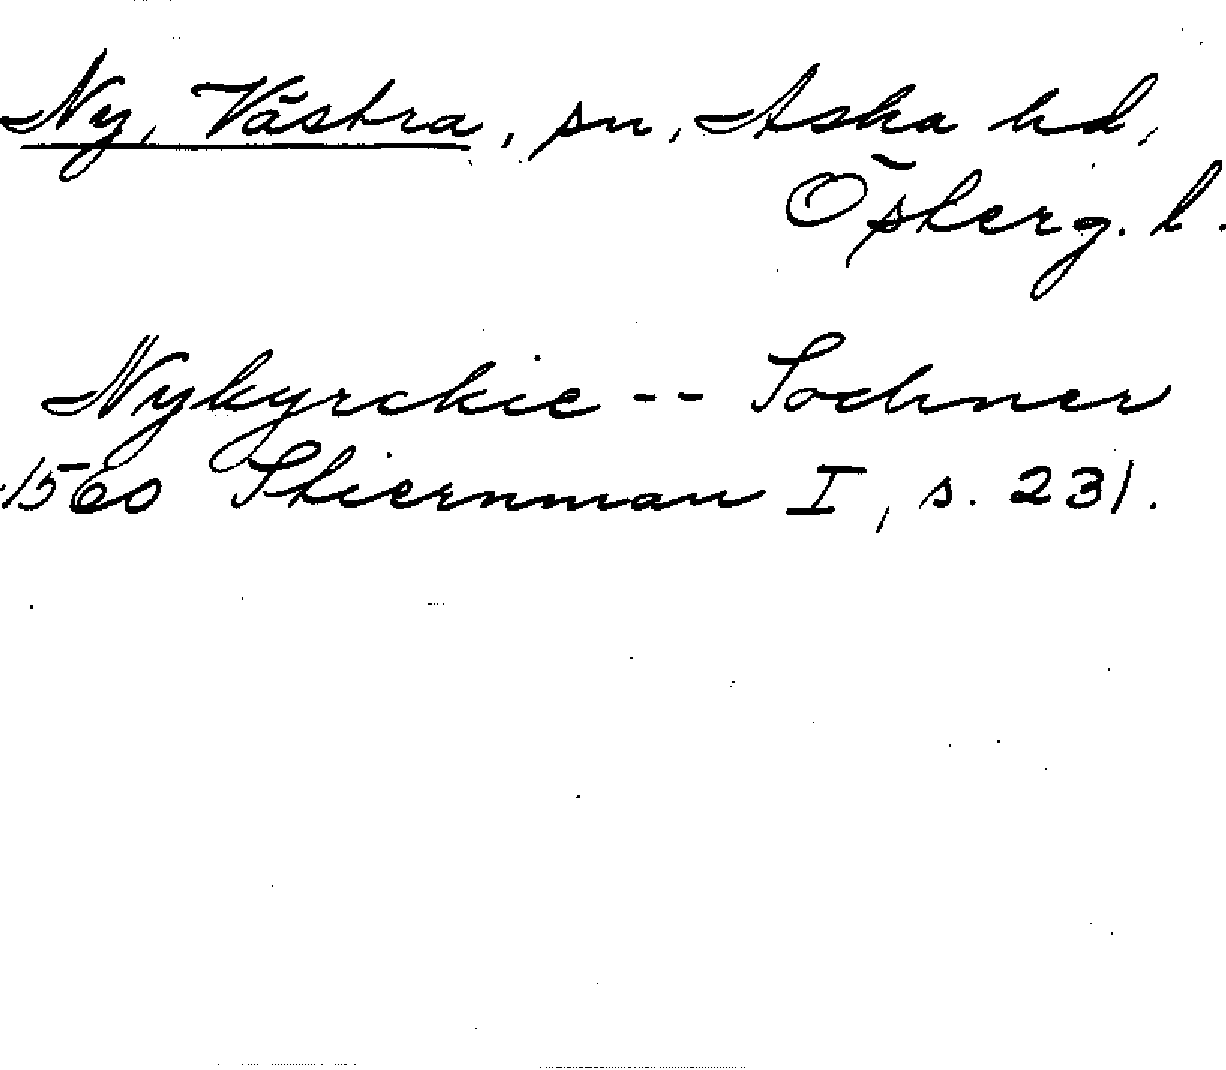 Ny, Västra, sn, Aska hd,
Östberg. l.
Nykyrckie -- Sochner
1560 Stiernman I, s. 231.